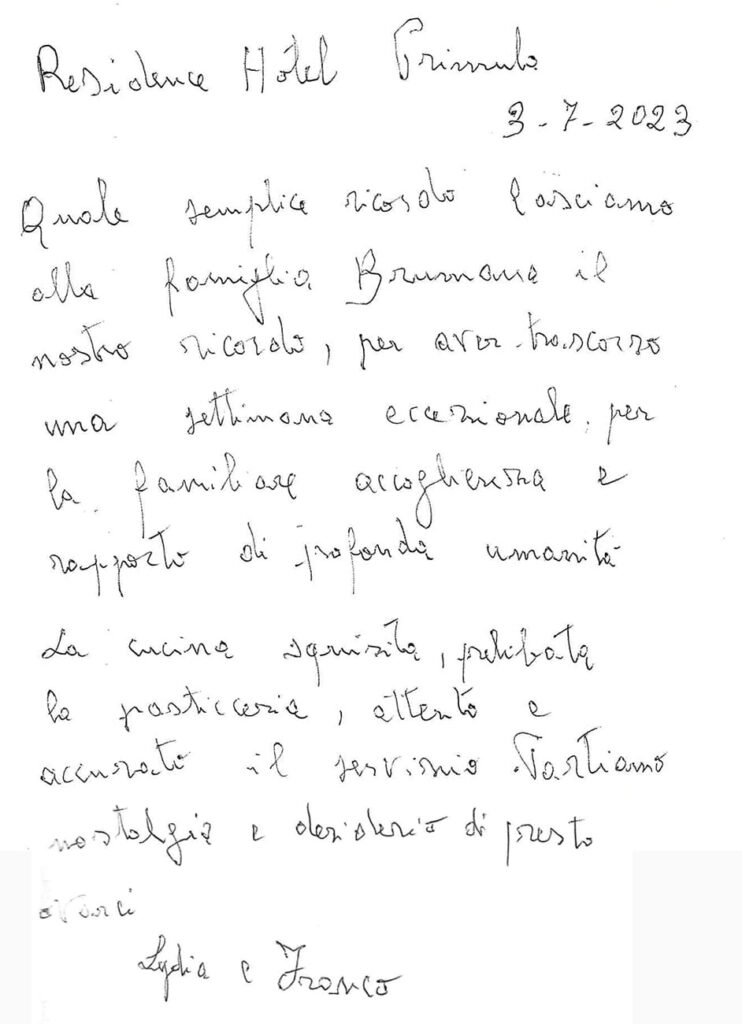 Residence Hôtel Primula
3-7-2023
Quale semplice ricordo lasciamo
alla famiglia Brumana il
nostro ricordo, per aver trascorso
una settimana eccezionale, per
la familiare accoglienza e
rapporto di profonda umanità
La cucina squisita, prelibata
la pasticceria, attento e
accurato il servizio Partiamo
nostalgia e desiderio di presto
Lydia e Franco